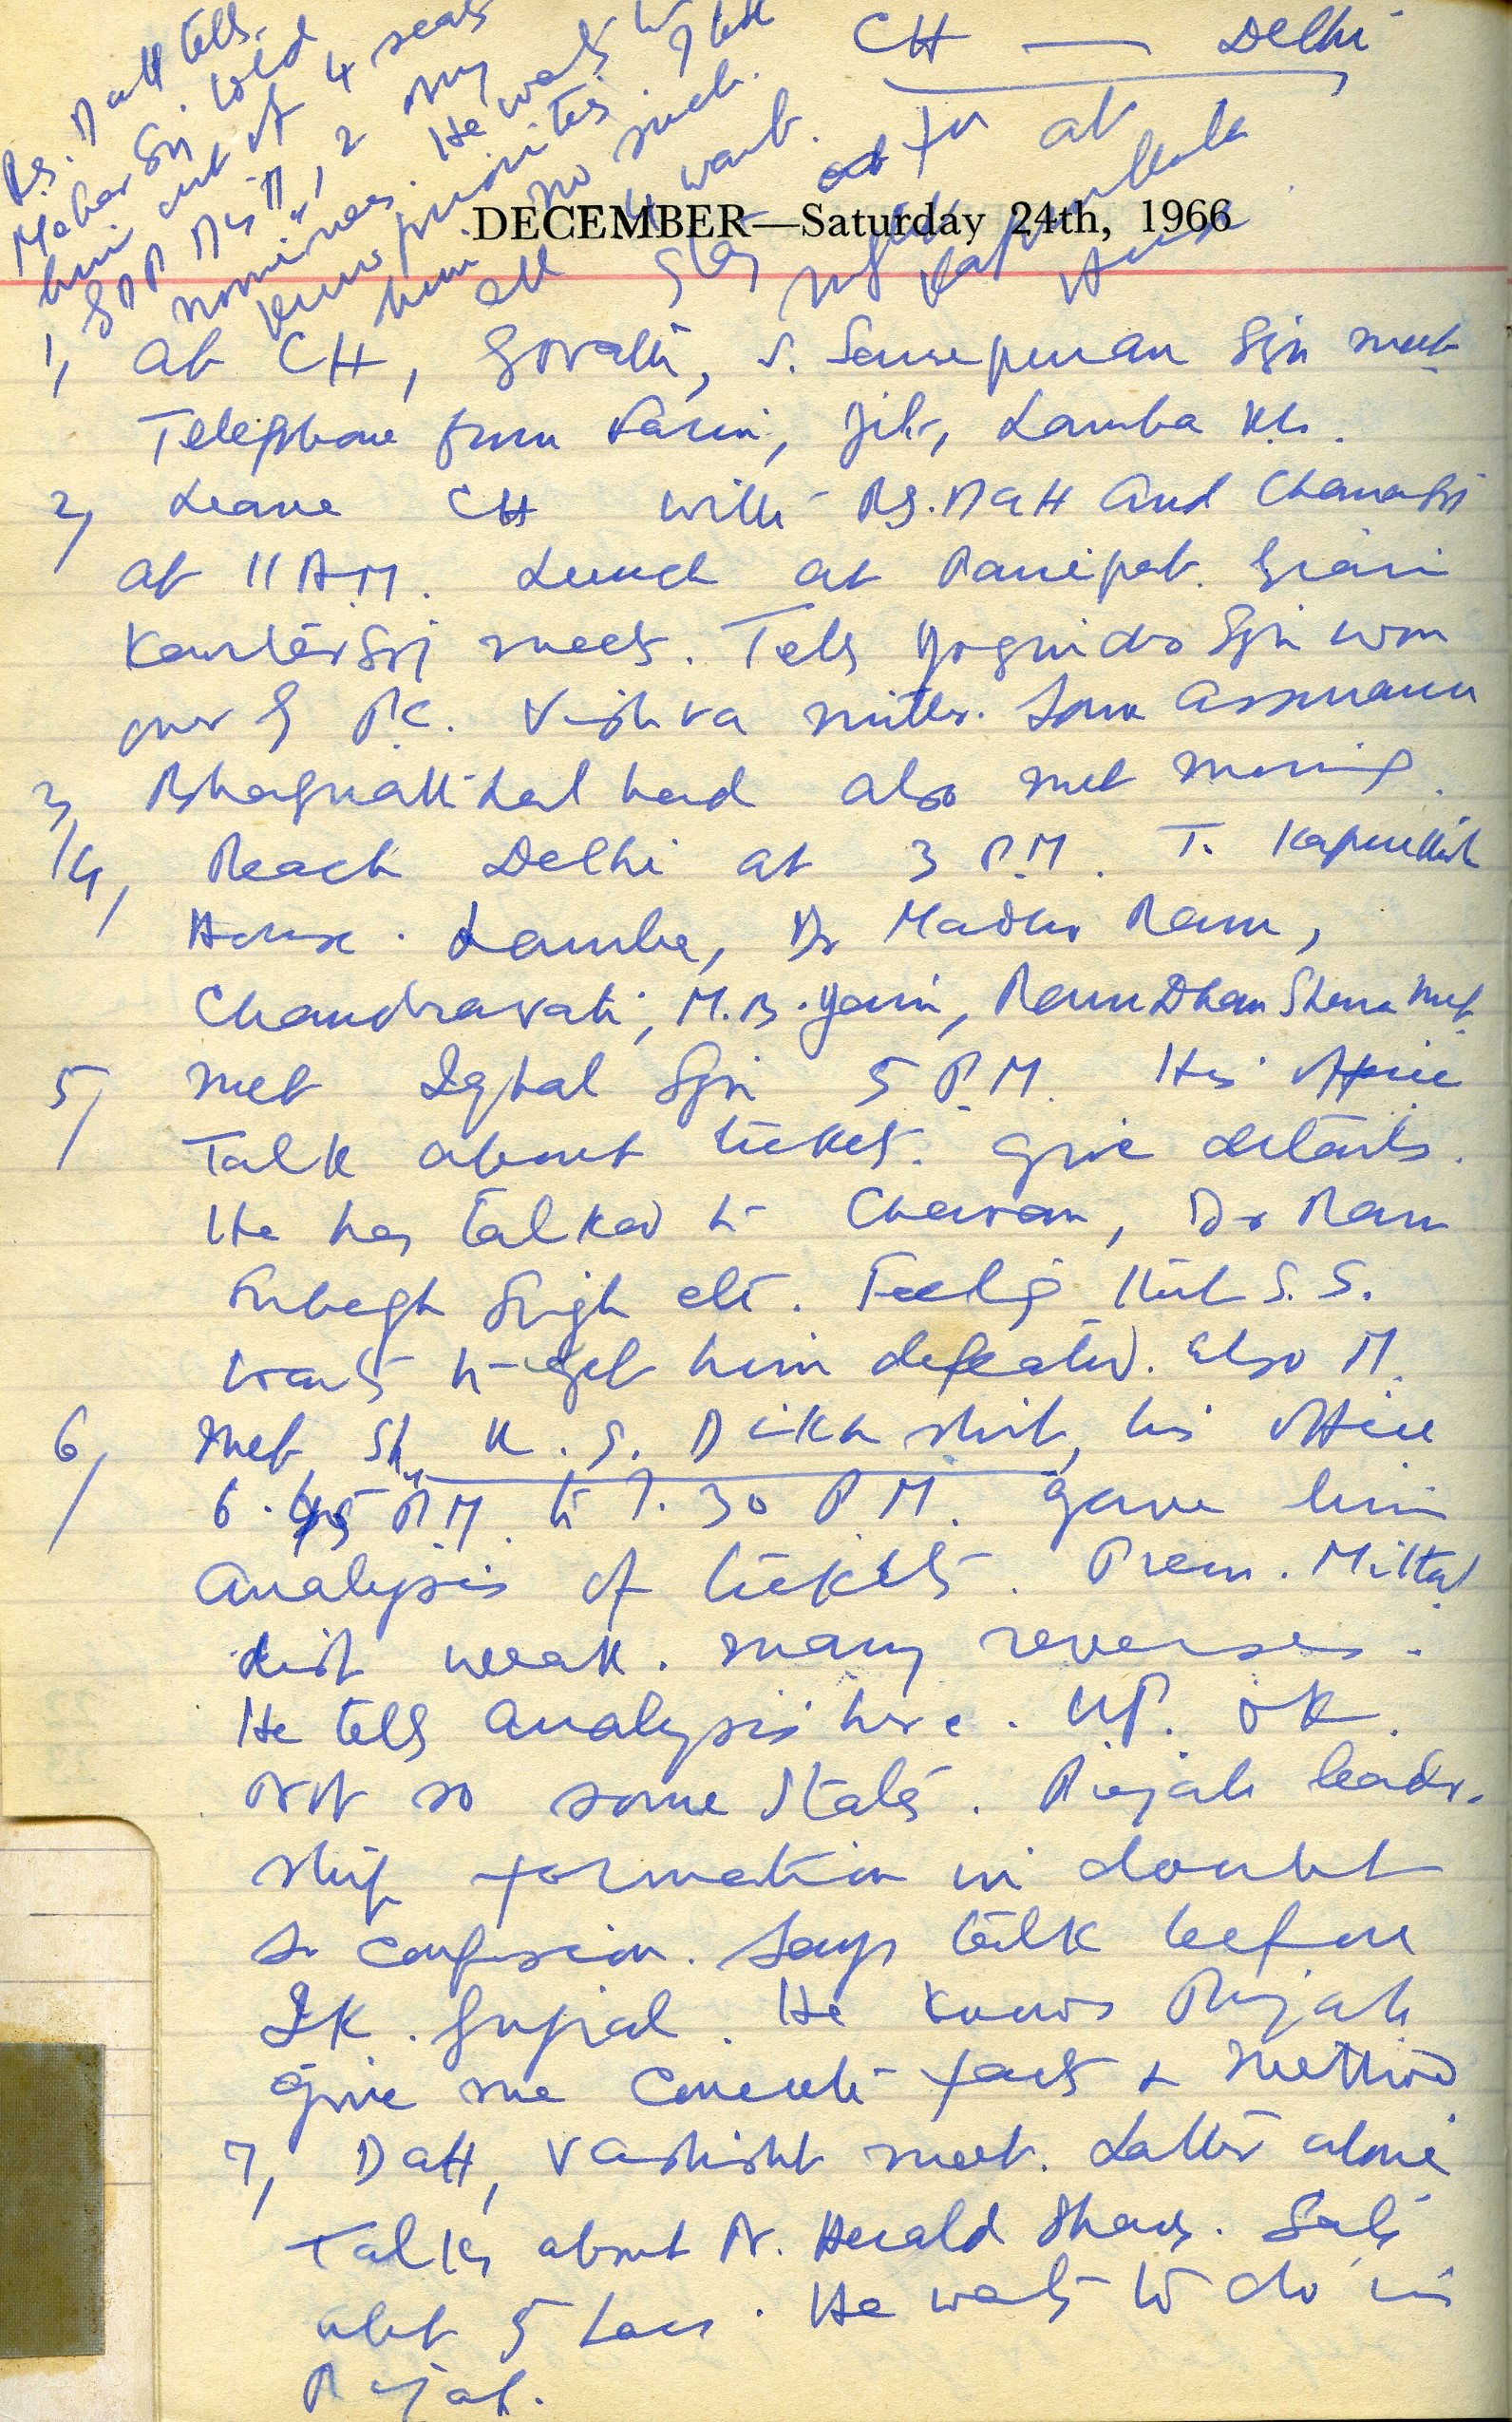 CH — Delhi
at
Kapurthala
House
Rs. Datt tells
Mehar Sgn. told
him out of 4 seats
Distt, 2 my
nominees. He wants to
know priorities. I tell
him no such.
all I want.
Stay
DECEMBER—Saturday 24th, 1966
1, at CH, S. Sgn meet
Telephone from Lamba
2, Leave CH with Rs. Datt and
at 11 A.M. Lunch at Panipat. Giani
meets. Tells Joginder Sgn won
over Vishva mitter. Some
3, Bhagwatti Lal had also met morning.
4, Reach Delhi at 3 P.M. T. Kapurthala
House. Lamba, Dr Madho Ram,
Chandravati, M.B. Ram Dhan met
5, Met Iqbal Sgn 5 P.M. His office
Talk about tickets. Give details.
He has talked to Chavan, Dr Ram
Subagh Singh etc. Feeling that S.S.
wants to get him defeated. Also M.
6, Met Sh. K. S. Dikhshit, his office
6.45 P.M. to 7.30 P.M. Gave him
analysis of tickets. Prem. Mittal
list weak. Many reverses.
He tells analysis here. UP. ok.
Not so some States. Punjab leader-
ship formation in doubt
so confusion. Says talk before
I.K. Gujral. He knows Punjab
give me concrete facts & method
7, Datt, Vashisht meet. Latter alone
Talks about N. Herald Shares. Sale
abt 5 Lacs. He wants to do in
Punjab.